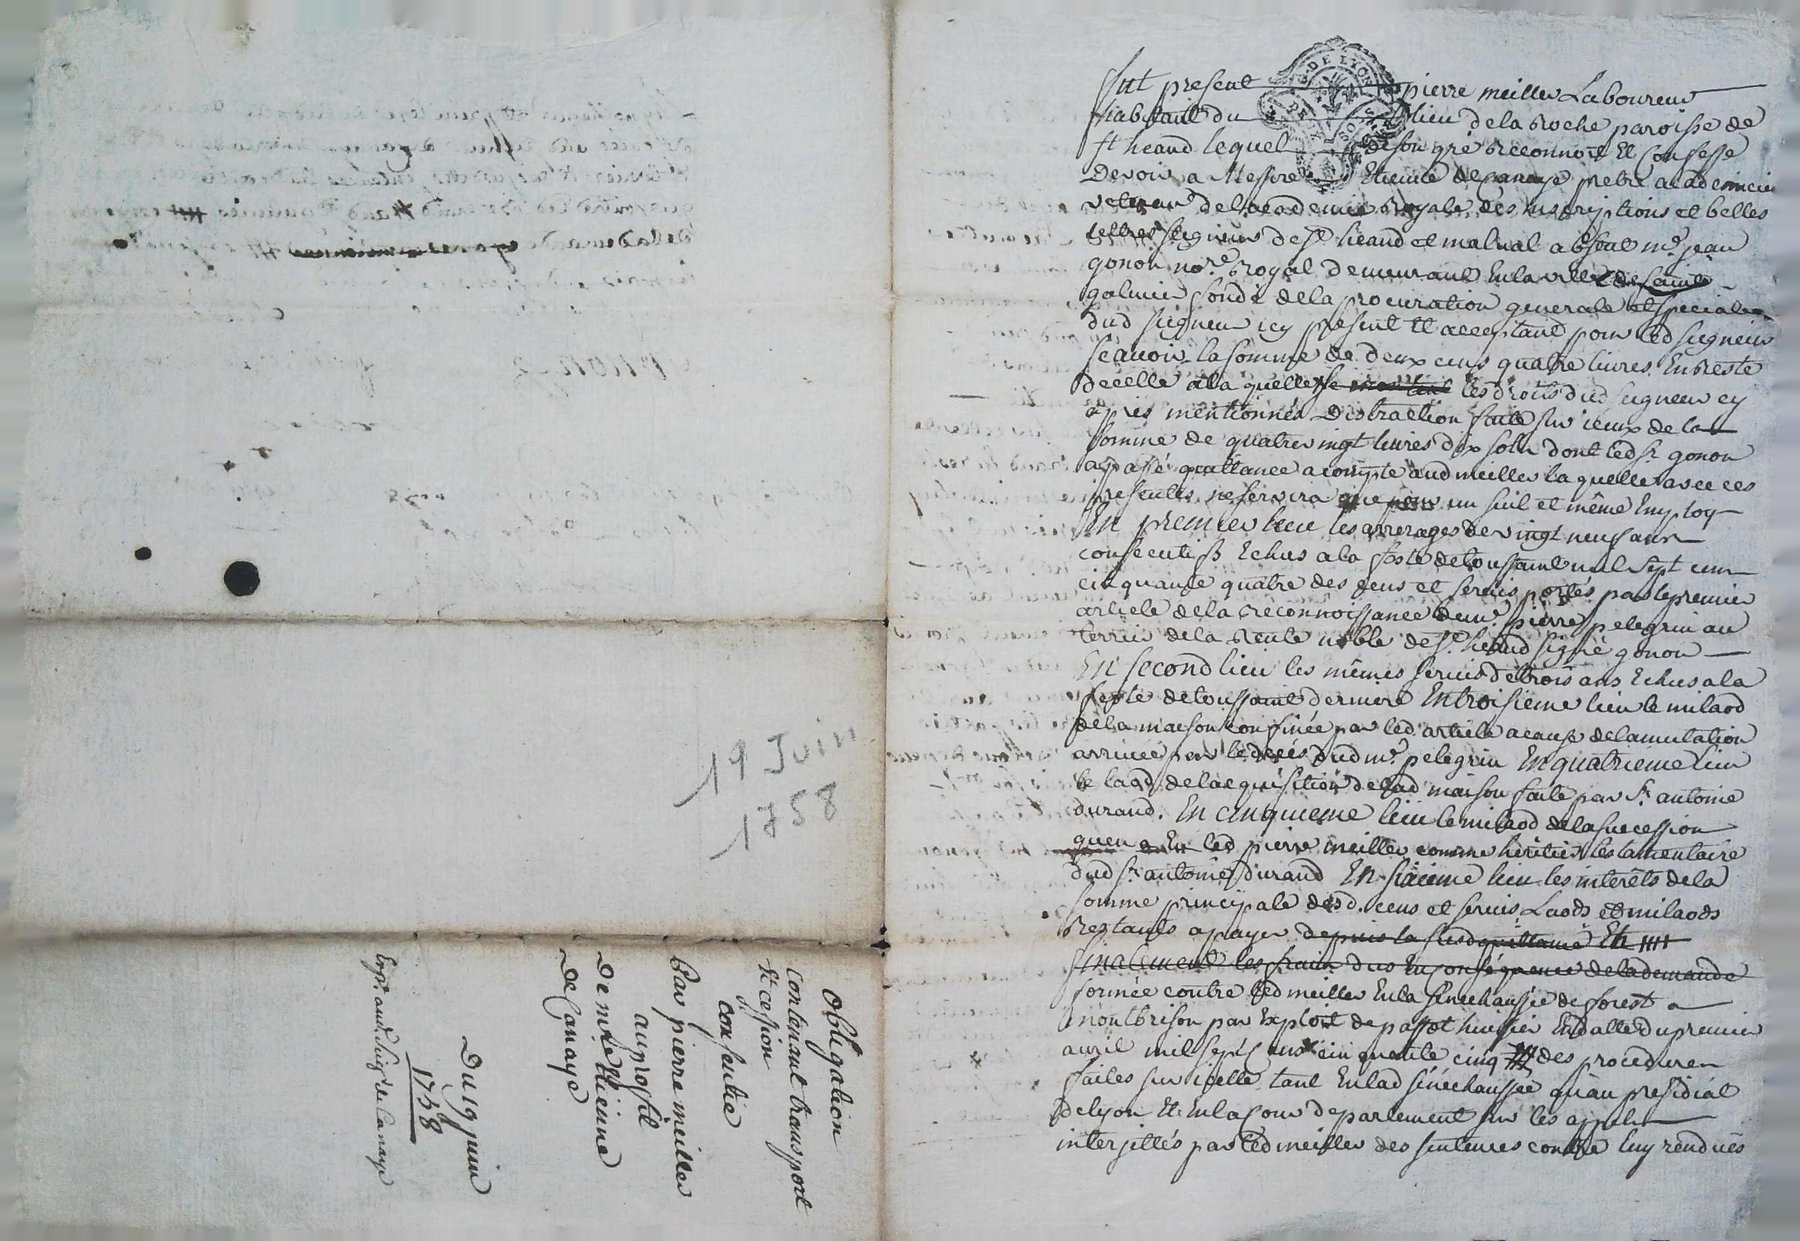 fut present pierre meiller Laboureur
habitant du lieu de la Roche paroisse de
st heand lequel de son gré reconnoit Et Confesse
Devoir a Messire Etienne de Canaye pretre academicien
veteran de lacademie Royale des inscriptions et belles
lettres seigneur de st heand et malval absent me. jean
gonon nore. Royal demeurant En la ville de saint
galmier fondé de la procuration generale et speciale
dud seigneur icy present Et acceptant pour led seigneur
scavoir la somme de deux cens quatre livres En reste
de celle a la quelle se montent les droits dud seigneur cy
apres mentionnés Distraction faite sur iceux de la
somme de quatre vingt livres dix sols dont led sr. gonon
a passé quittance a compte aud meiller la quelle avec ces
presentes ne servira que pour un seul et même Employ
En premier lieu les arrerages de vingt neuf ans
consecutifs Echus a la feste de toussaint mil sept cens
cinquante quatre des cens et servis portés par le premier
article de la reconnoissance de me. pierre pelegrin au
terrier de la Rente noble de st. heand signé gonon
En second lieu les mêmes servis de trois ans Echus a la
feste de toussaint derniere En troisieme lieu le milaod
de la maison confinée par led article a cause de la mutation
arrivée par le decés dud me. pelegrin En quatrieme lieu
le laod de lacquisition de lad maison faite par sr. antoine
durand. En cinquieme lieu le milaod de la succession
led pierre meiller comme héritier testamentaire
dud sr. antoine durand En sixieme lieu les interêts de la
somme principale desd. cens et servis Laods et milaods
Restants a payer depuis la susd quittance Et
finalement les fraix dus En conséquence de la demande
formée contre led meiller En la senechaussée de forest a
montbrison par Exploit de passot huissier En datte du premier
avril mil sept cens cinquante cinq des procedures
faites sur icelle tant En lad sénéchaussée qu'au presidial
de lyon Et En la Cour de parlement sur les appels
interjettés par led meiller des sentences contre luy rendues
19 Juin
1758
Obligation
contenant transport
Et cession
consentie
Par pierre meiller
au profit
De mre Etienne
De Canaye
Du 19 juin
1758
Expn. aud. Seigr. de Canaye